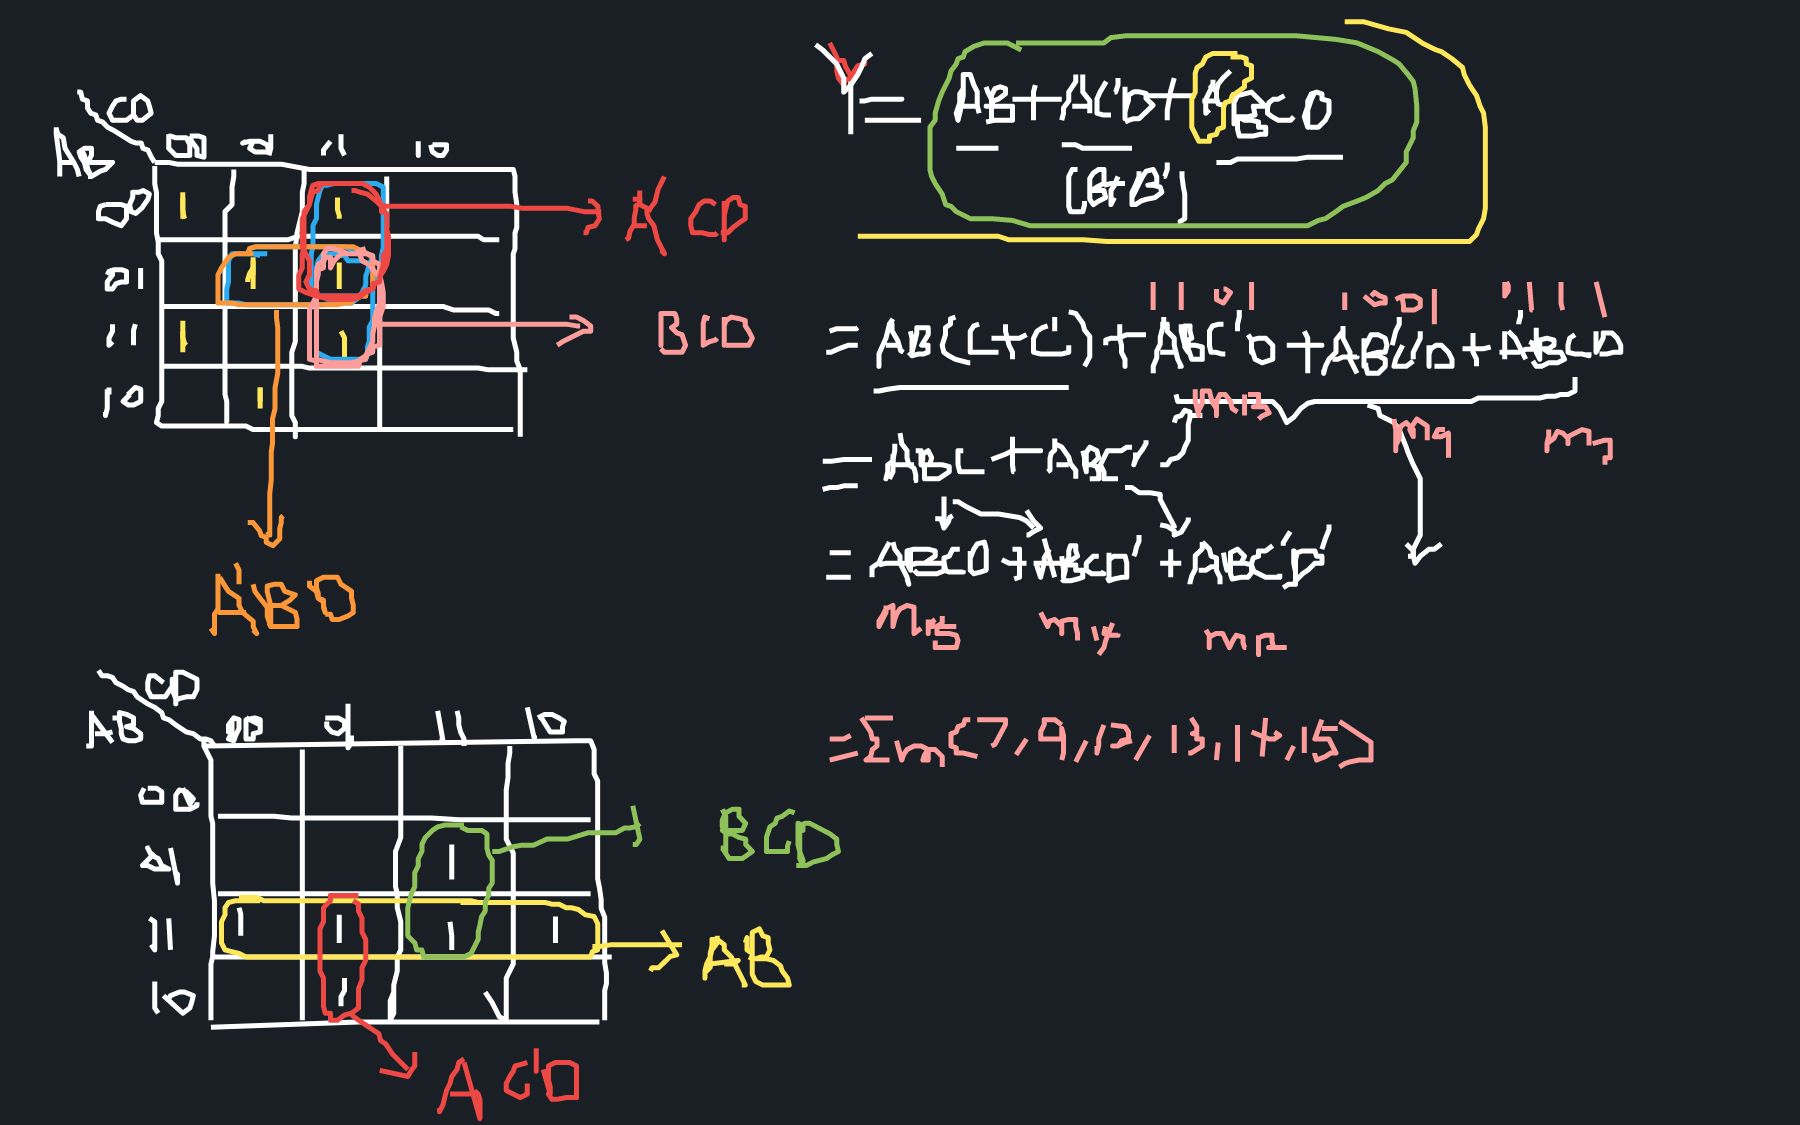 CD
AB
00 01 11 10
00 1 1
01 1 1
11 1 1
10 1
A'CD
BCD
A'BD
Y = AB + AC'D + A'BCD
(B+B')
1101 1001 0111
= AB(C+C') + ABC'D + AB'C'D + A'BCD
m13 m9 m7
= ABC + ABC'
= ABCD + ABCD' + ABC'D'
m15 m14 m12
= Σm(7,9,12,13,14,15)
CD
AB
00 01 11 10
00
01 1
11 1 1 1 1
10 1
BCD
AB
AC'D